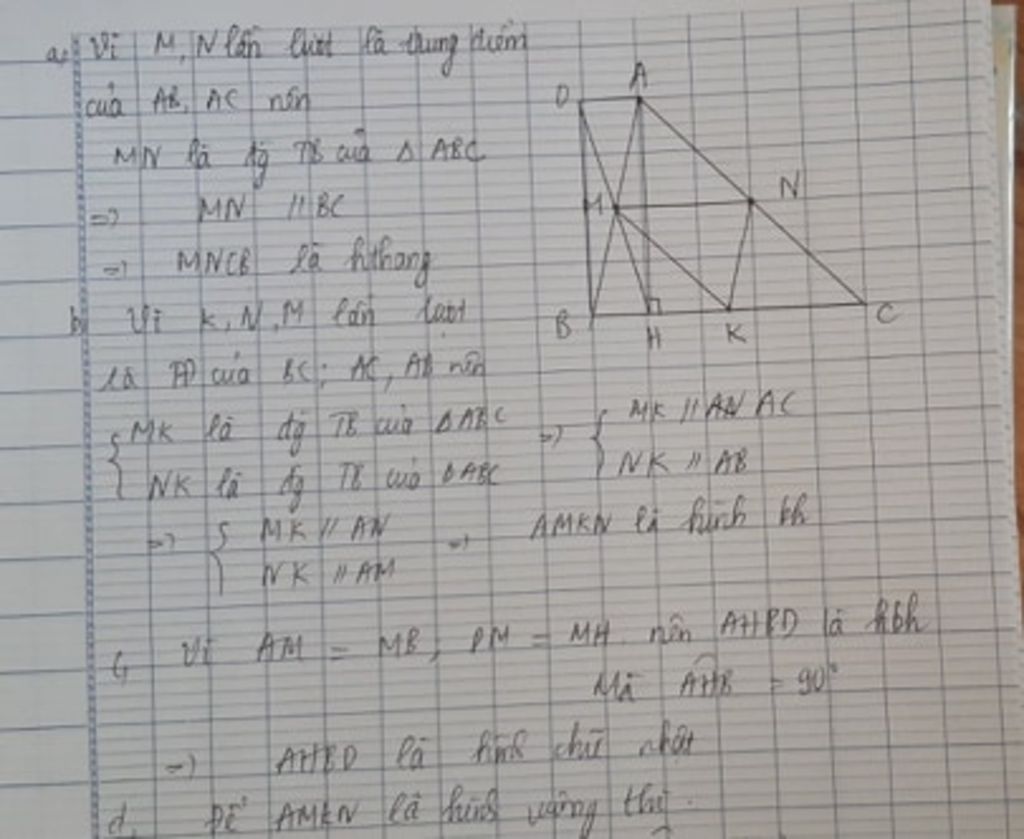 a, Vì M, N lần lượt là trung điểm
của AB, AC nên
MN là đg TB của Δ ABC
=> MN // BC
=> MNCB là hthang
b, Vì K, N, M lần lượt
là TĐ của BC; AC, AB nên
MK là đg TB của Δ ABC => MK // AN AC
NK là đg TB của Δ ABC NK // AB
=> MK // AN => AMKN là hình bh
NK // AM
c, Vì AM = MB, DM = MH nên AHBD là hbh
Mà AHB = 90°
=> AHBD là hình chữ nhật
d, Để AMKN là hình vuông thì
D A
M N
B H K C